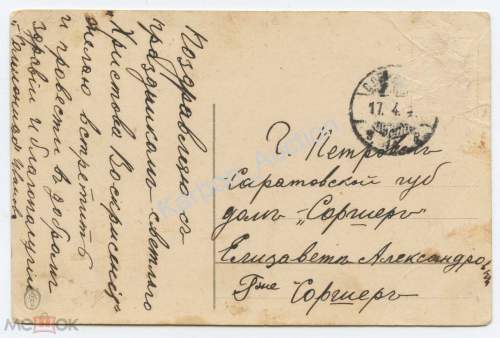 Поздравляю с
праздником светлаго
Христова Воскрисения
желаю встретить
и провести в добром
здравии и благополучии
17. 4.
Г Петровскъ
Саратовской губ
домъ „Соргиеръ"
Елизаветѣ Александровнѣ
Г-же Соргиеръ
Karbon_Auction
МЕШОК